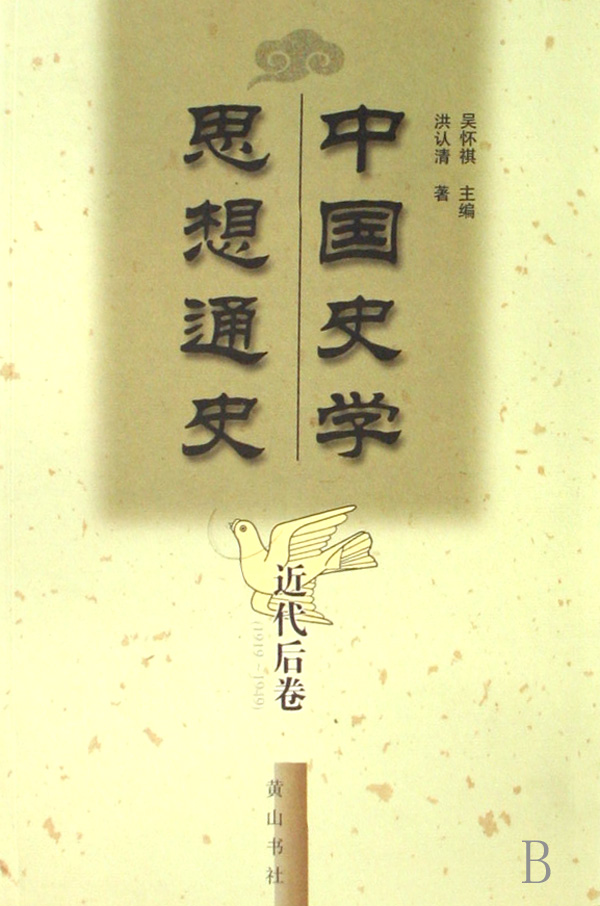 吴怀祺 主编
洪认清 著
中国史学
思想通史
近代后卷
(1919-1949)
黄山书社
B